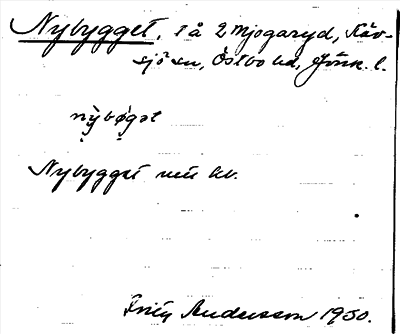 Nybygget, t å 2 Mjogaryd, Käv-
sjö sn, Östbo hd, Jönk. l.
nỳbǿgət
Nybygget mu kv.
Fritz Andersson 1930.